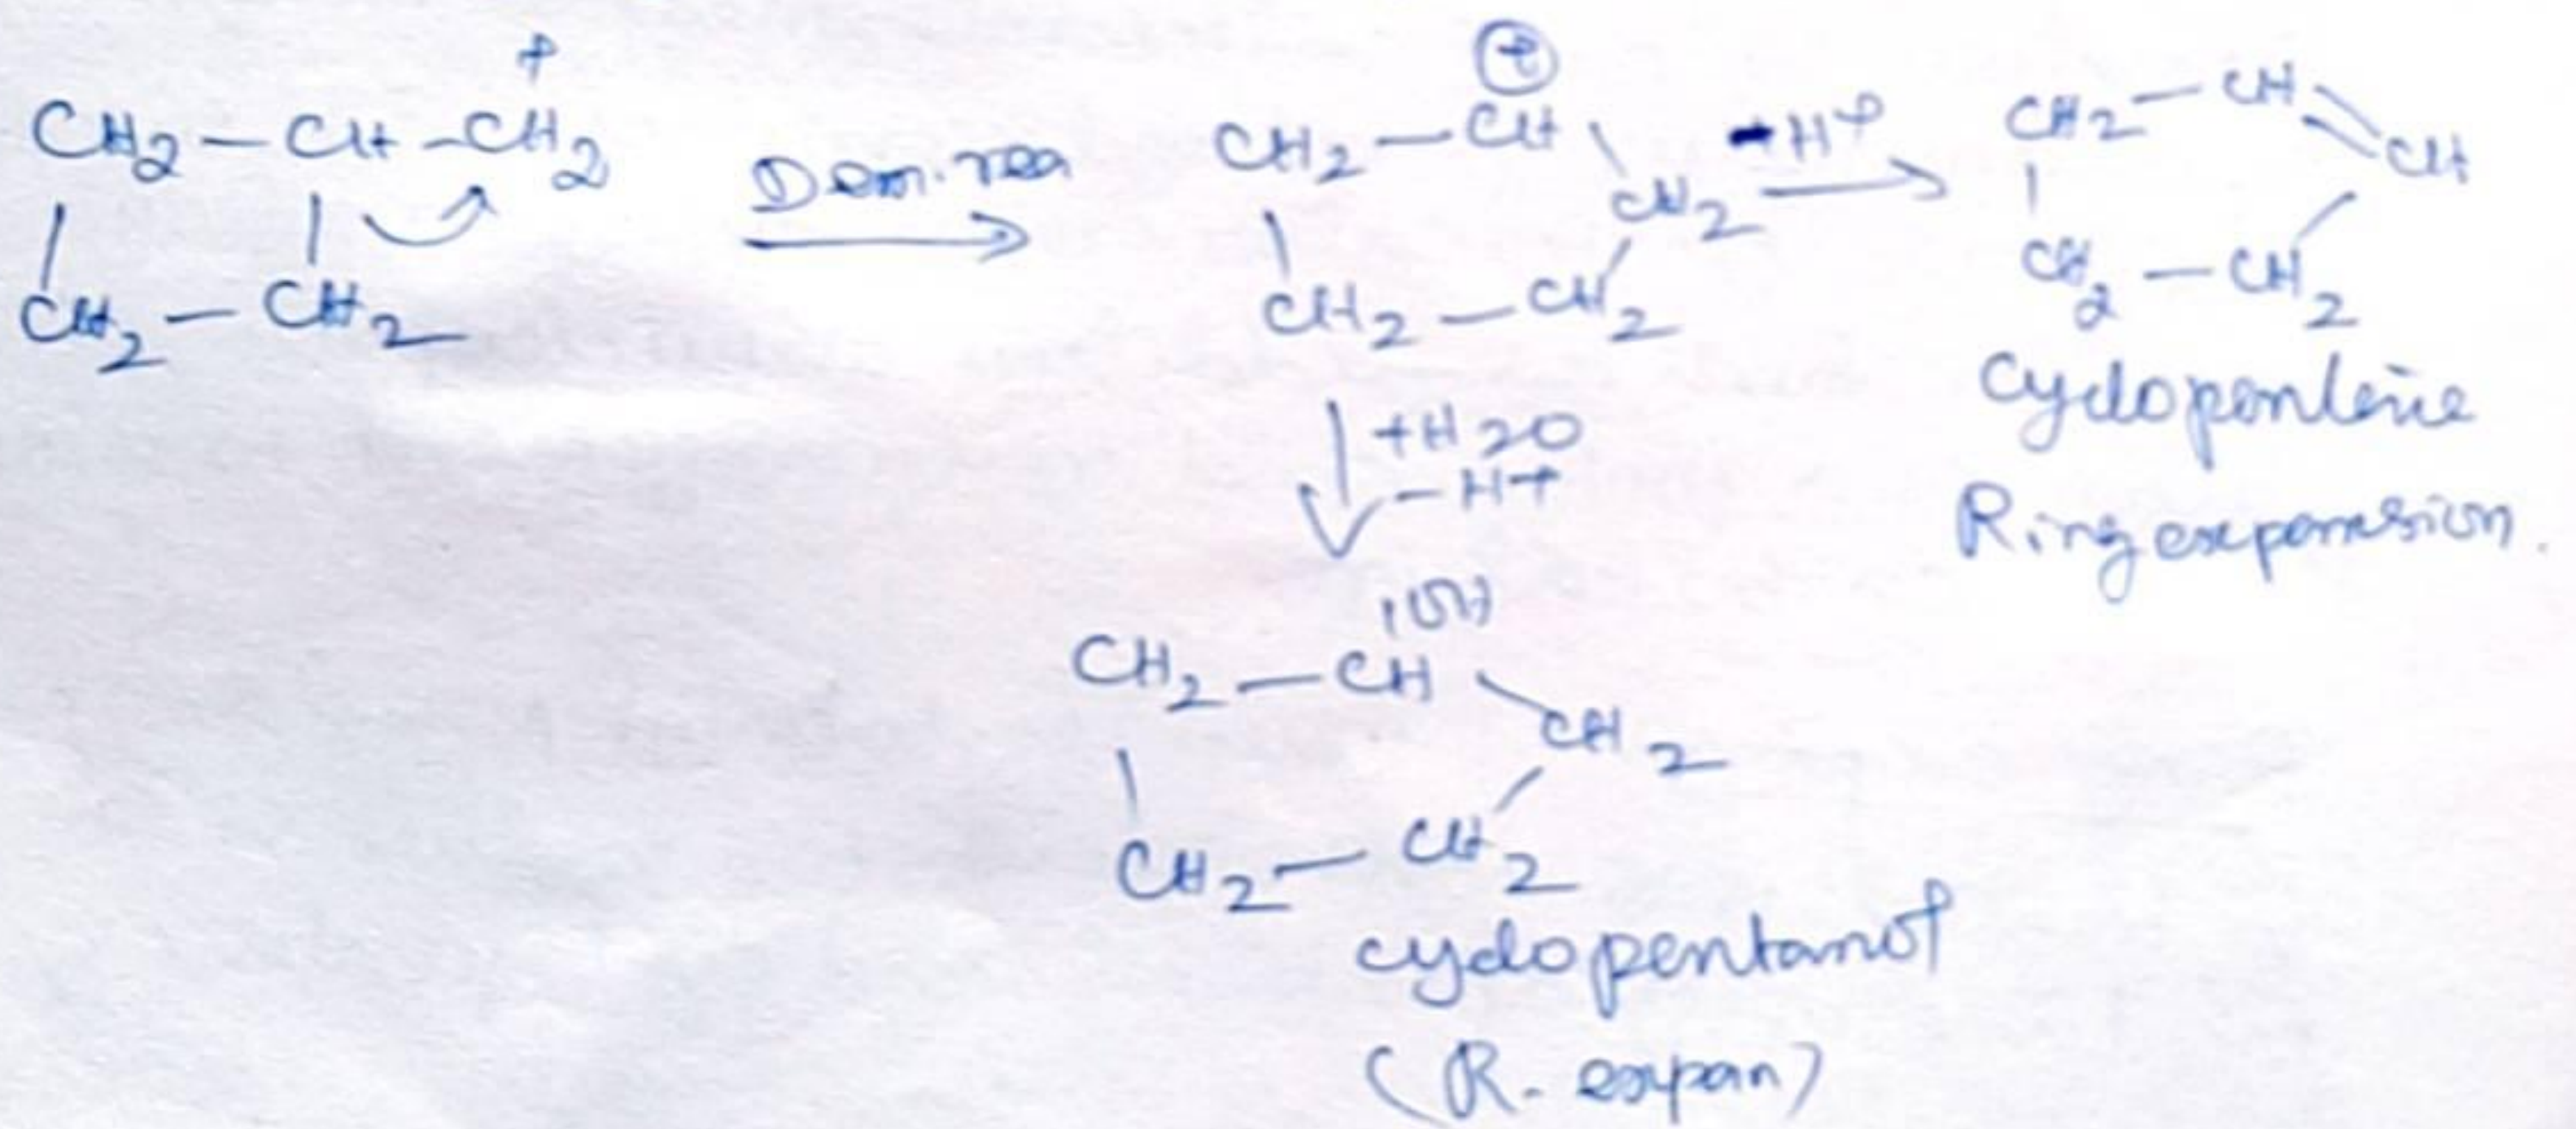 CH2 – CH – CH2 +
CH2 – CH2
Dem. rea
⊕
CH2 – CH
CH2
CH2 – CH2
-H⊕
CH2 – CH
CH
CH2 – CH2
Cyclopentene
Ring expansion.
+H2O
-H+
OH
CH2 – CH
CH2
CH2 – CH2
cyclopentanol
(R. expan)